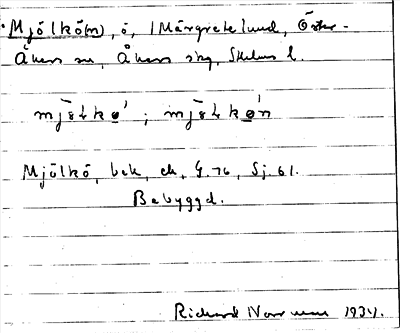 Mjölkö(n), ö, i Märgretelund, Öster-
Åkers sn, Åkers skg, Sthlms l.
mjø̄lkø̀ ; mjø̄lkø̀n
Mjölkö, bek, ek, G. 76, Sj. 61.
Bebyggd.
Richard Norrman 1934.